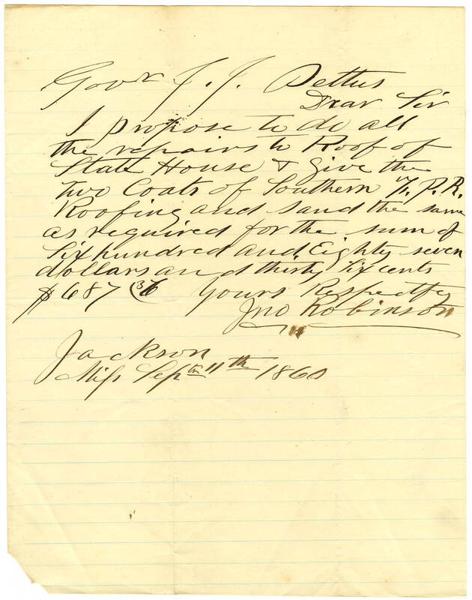 Govr J. J. Pettus
Dear Sir
I propose to do all
the repairs to Roof of
State House & Give the
two Coats of Southern F. P. R.
Roofing and sand the same
as required for the sum of
Six hundred and Eighty seven
dollars and thirty six cents
$687 36 Yours Respectfy
Jno Robinson
Jackson
Miss Sepbr 11th 1860